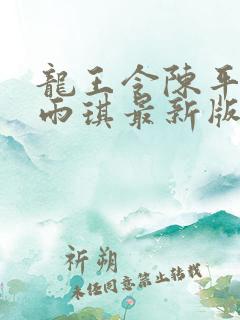 龍王令陳平
雨琪最新版
祈朔
未经同意禁止转载